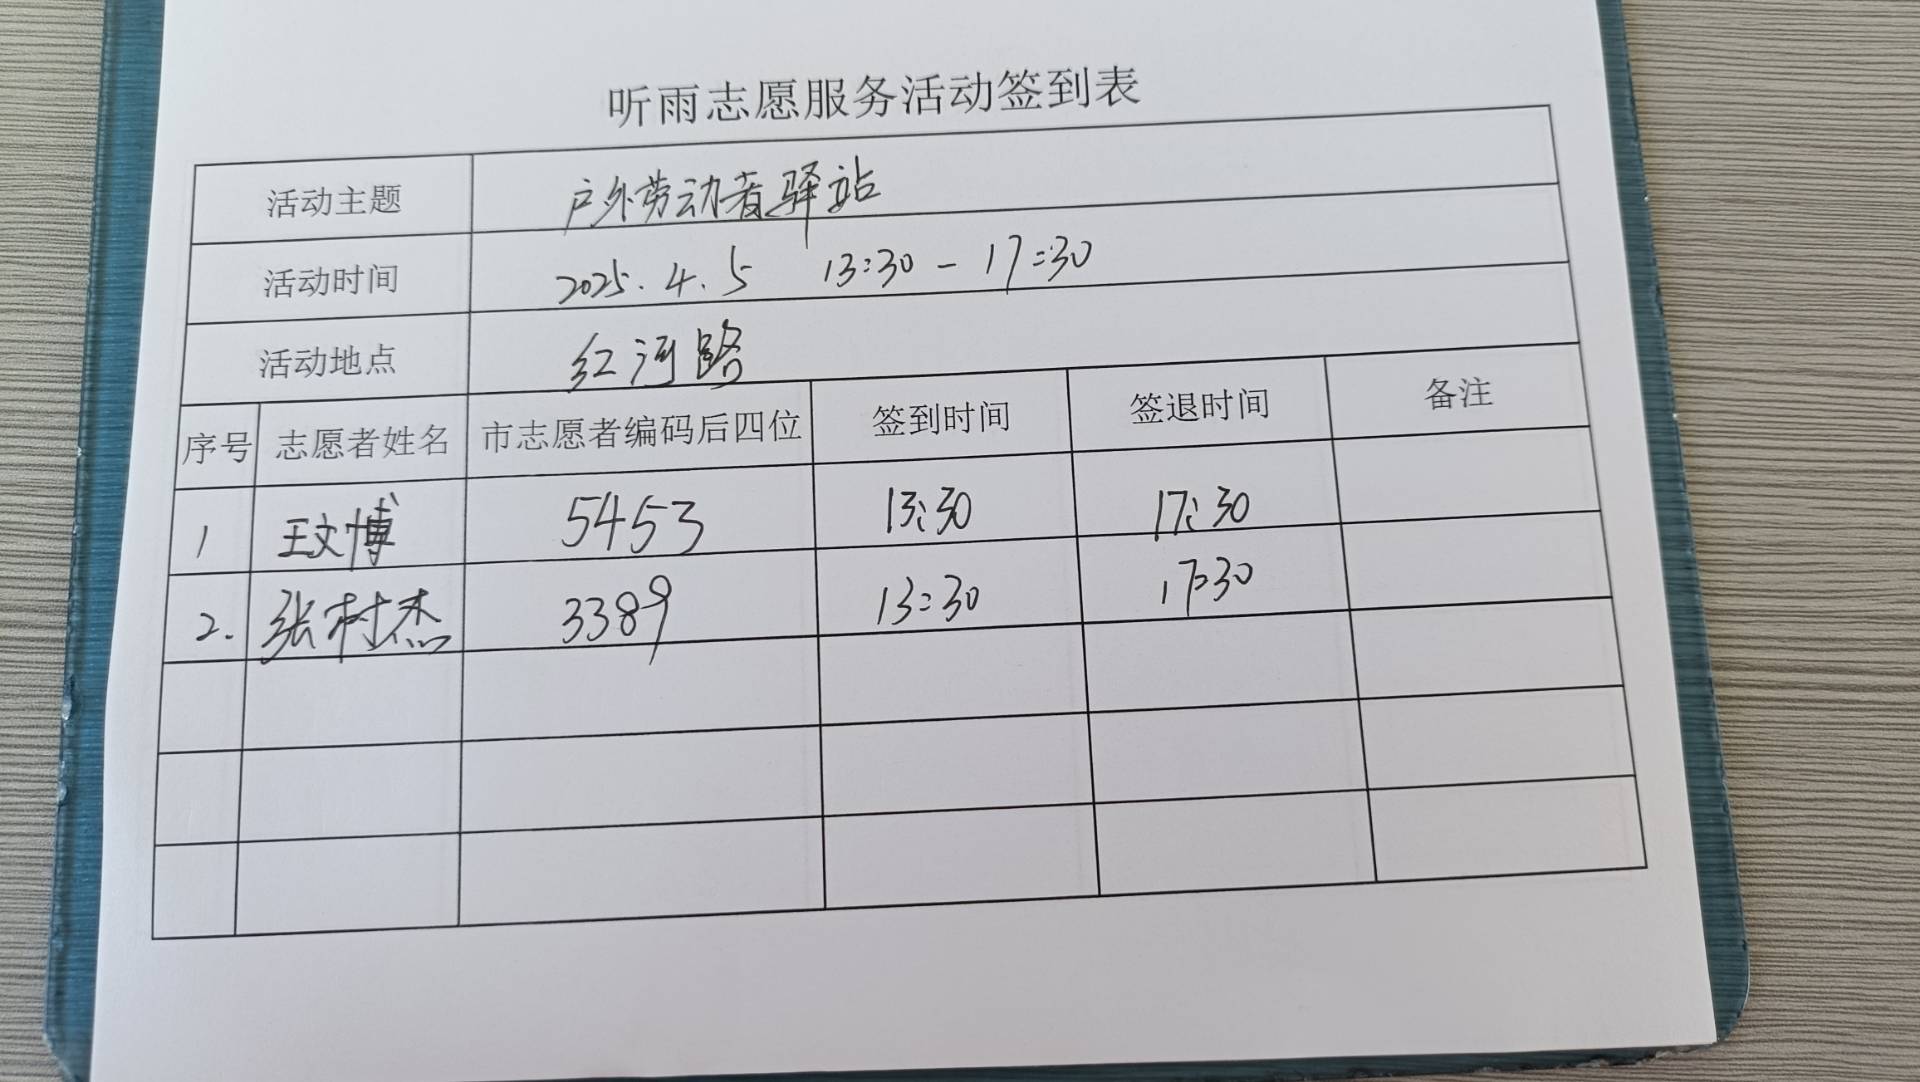 听雨志愿服务活动签到表
活动主题 户外劳动者驿站
活动时间 2025.4.5 13:30-17:30
活动地点 红河路
序号 志愿者姓名 市志愿者编码后四位 签到时间 签退时间 备注
1 王文博 5453 13:30 17:30
2. 张村杰 3389 13:30 17:30